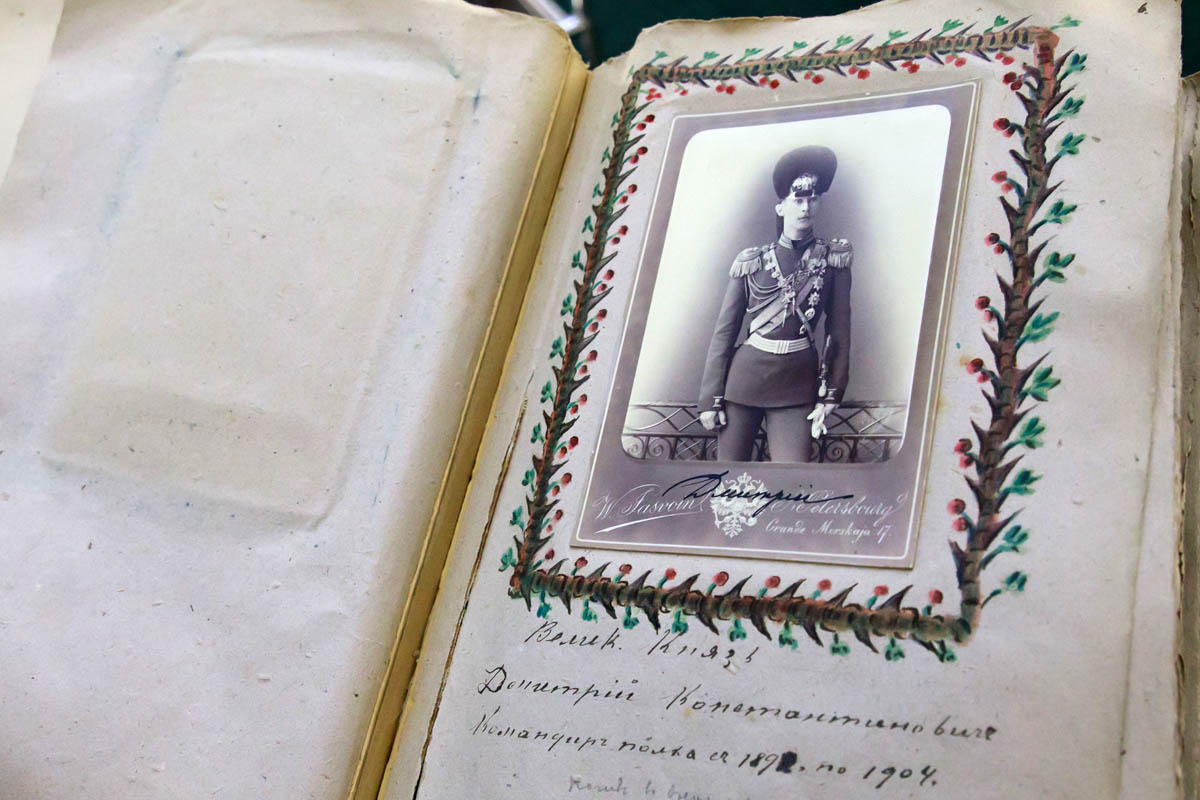 6.
Дмитрій
W. Jasvoin St. Petersbourg
Grande Morskaja 17.
Велик. Князь
Дмитрій Константиновичъ
Командиръ полка съ 189 по 1904.